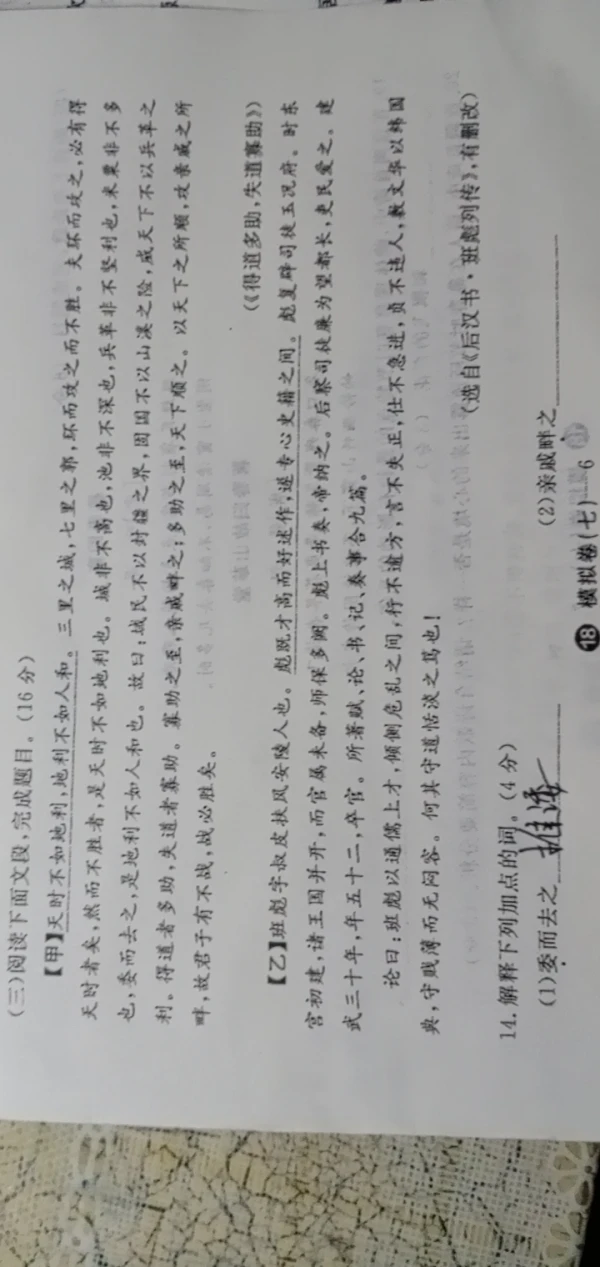 (三)阅读下面文段,完成题目。(16分)
【甲】天时不如地利,地利不如人和。三里之城,七里之郭,环而攻之而不胜。夫环而攻之,必有得
天时者矣,然而不胜者,是天时不如地利也。城非不高也,池非不深也,兵革非不坚利也,米粟非不多
也,委而去之,是地利不如人和也。故曰:域民不以封疆之界,固国不以山溪之险,威天下不以兵革之
利。得道者多助,失道者寡助。寡助之至,亲戚畔之;多助之至,天下顺之。以天下之所顺,攻亲戚之所
畔,故君子有不战,战必胜矣。
(《得道多助,失道寡助》)
【乙】班彪字叔皮扶风安陵人也。彪既才高而好述作,遂专心史籍之间。彪复辟司徒玉况府。时东
宫初建,诸王国并开,而官属未备,师保多阙。彪上书奏,帝纳之。后察司徒廉为望都长,吏民爱之。建
武三十年,年五十二,卒官。所著赋、论、书、记、奏事合九篇。
论曰:班彪以通儒上才,倾侧危乱之间,行不逾方,言不失正,仕不急进,贞不违人,敷文华以纬国
典,守贱薄而无闷容。何其守道恬淡之笃也!
(选自《后汉书·班彪列传》,有删改)
14.解释下列加点的词。(4分)
(1)委而去之 (2)亲戚畔之
18 模拟卷(七)—6